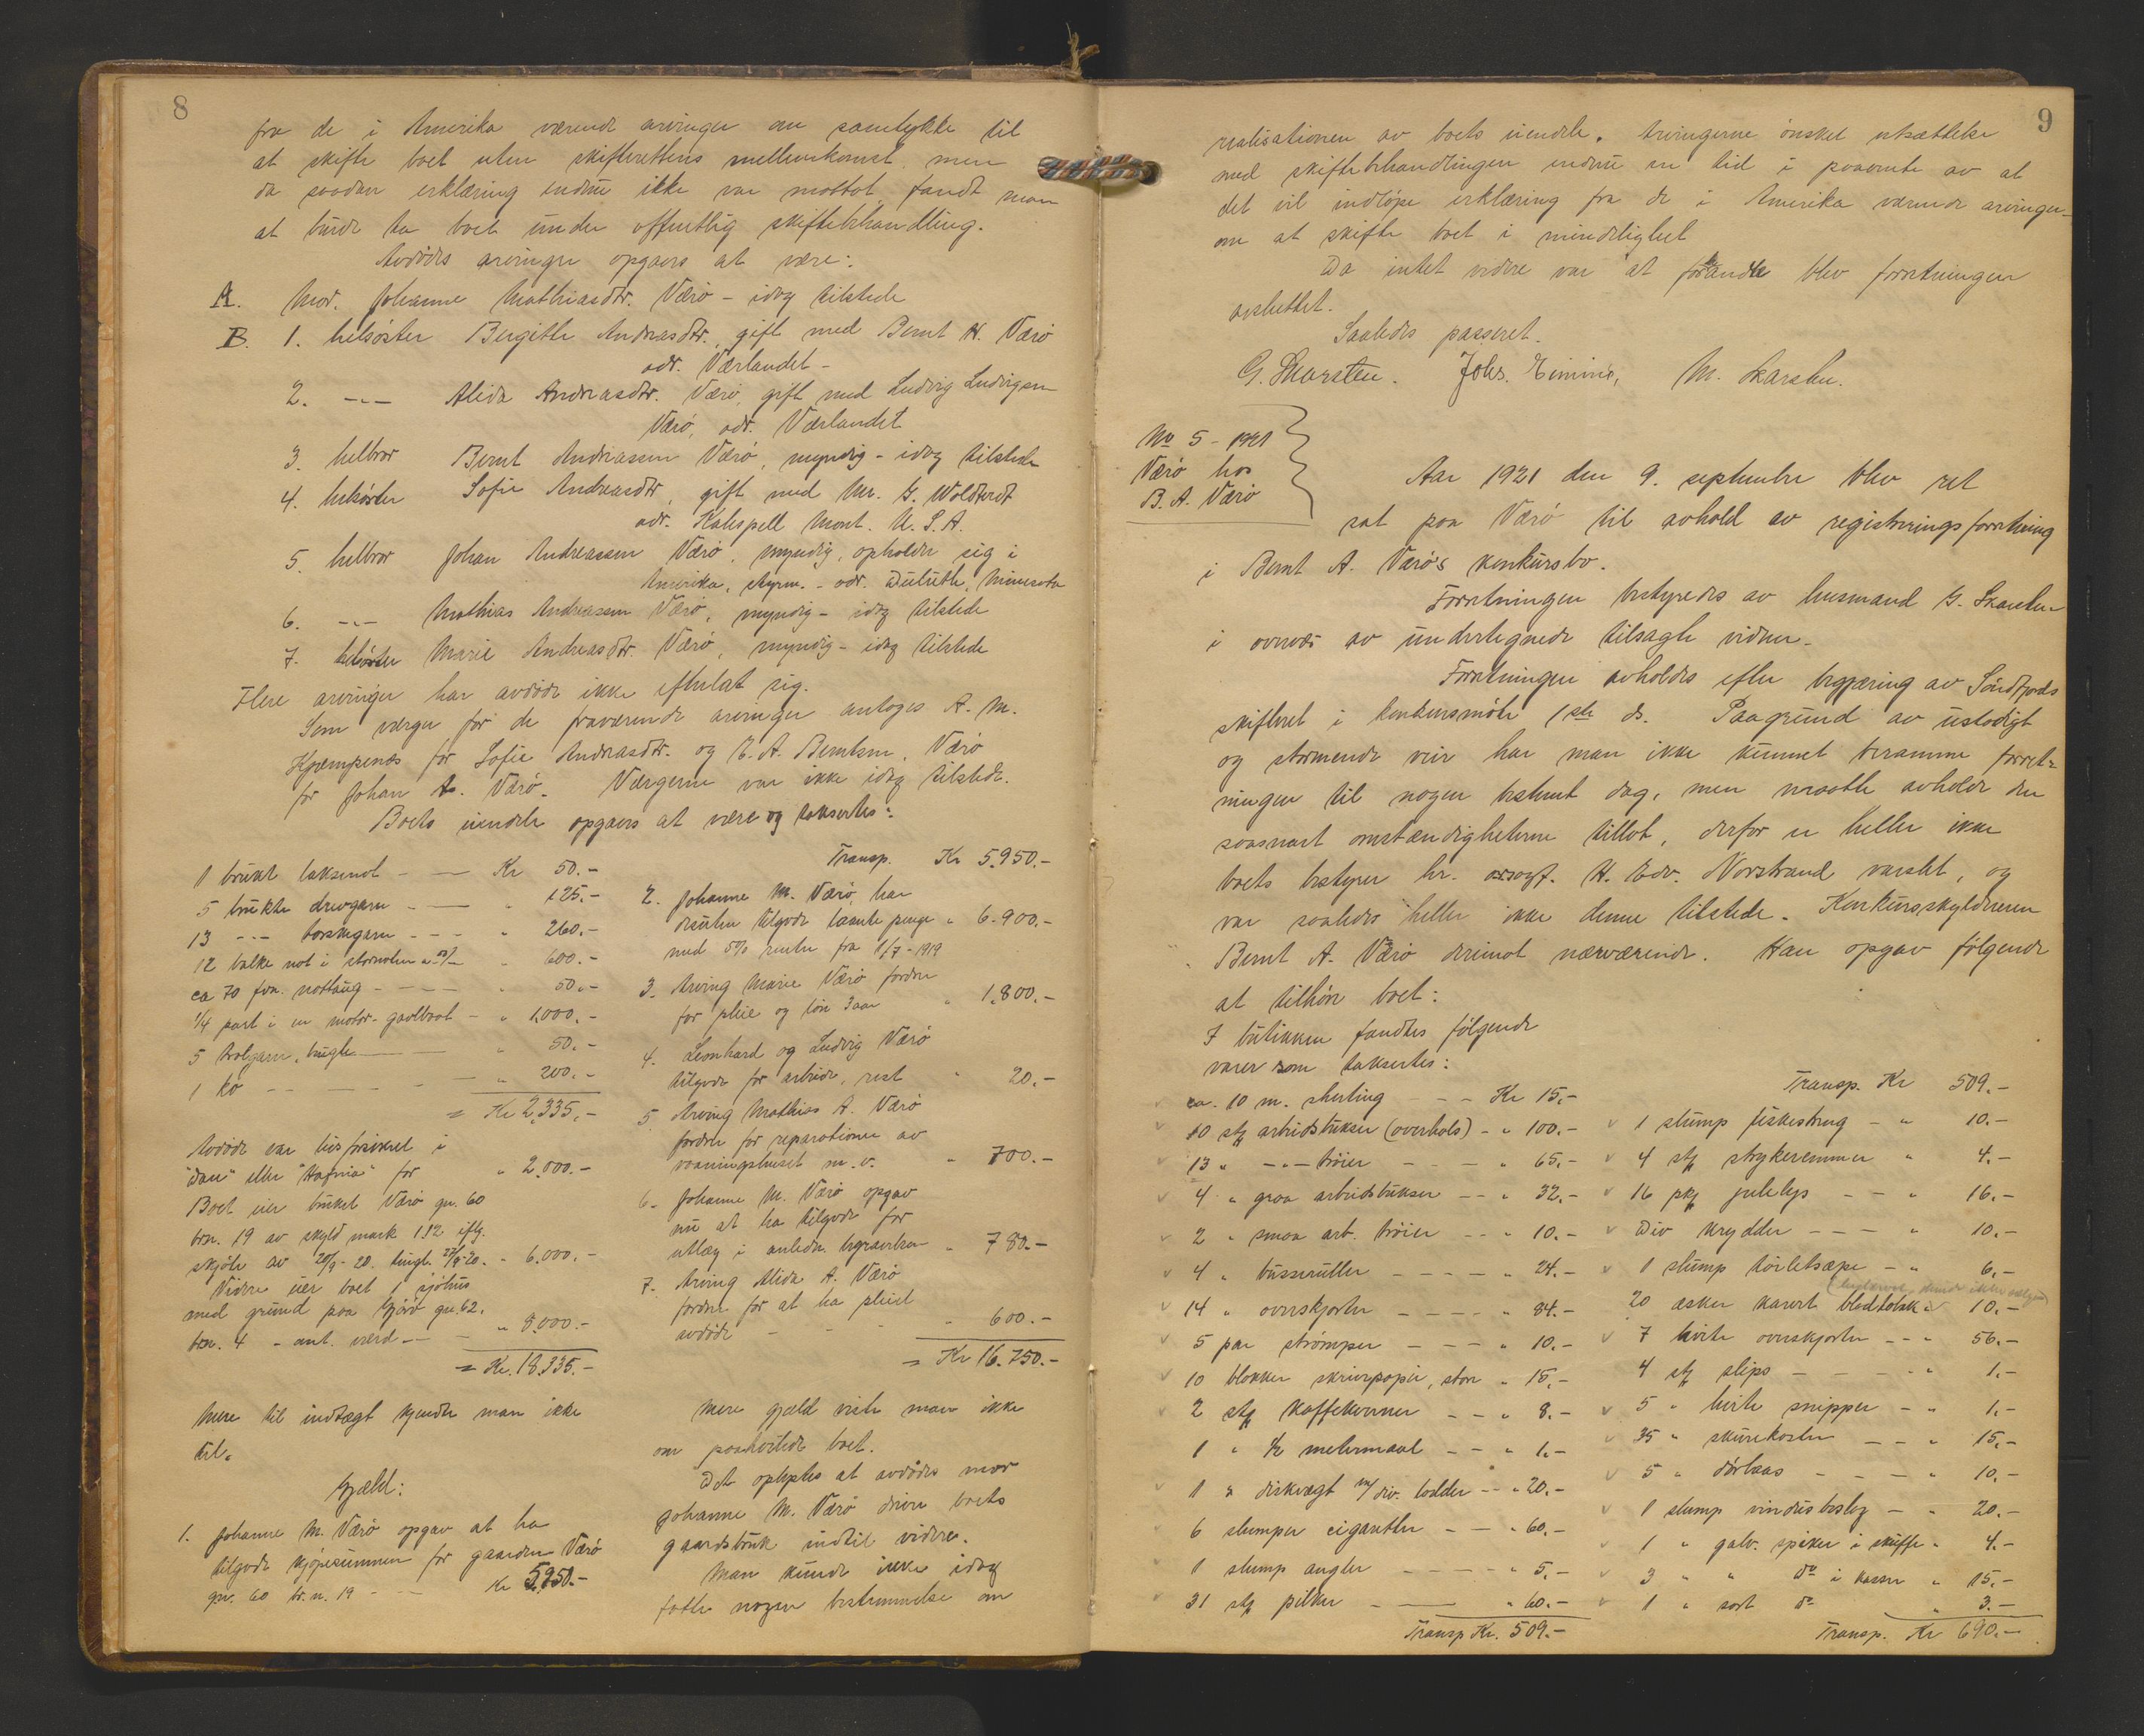 8
fra de i Amerika værende arvinger om samtykke til
at skifte boet uten skifterettens mellemkomst, men
da saadan erklæring endnu ikke var mottat, fandt man
at burde ta boet under offentlig skiftebehandling.
Avdødes arvinger opgaves at være:
A. Mor. Johanne Mathiasdtr. Værö - idag tilstede
B. 1. helsöster Birgithe Andreasdtr., gift med Bernt H. Værö
adr. Værlandet -
2. -"- Alida Andreasdtr. Værö, gift med Ludvig Ludvigsen
Værö, adr. Værlandet
3. helbror Bernt Andreassen Værö, myndig - idag tilstede
4. helsöster Sofie Andreasdtr, gift med Mr. G.
adr. Kalispell Mont. U.S.A.
5. helbror Johan Andreassen Værö, myndig, opholder sig i
Amerika, styrm. - adr. Duluth, Minesota
6. -"- Mathias Andreassen Værö, myndig - idag tilstede
7. helsöster Marie Andreasdtr. Værö, myndig - idag tilstede
Flere arvinger har avdöde ikke efterlat sig.
Som værger for de fraværende arvinger antoges A. M.
Kjempenes for Sofie Andreasdtr. og E. A. Berntsen, Værö
for Johan A. Værö. Værgerne var ikke idag tilstede.
Boets eiendele opgaves at være og taksertes:
1 brukt laksenot - — Kr 50.-
5 brukte drivgarn - — " 125.-
13 -"- torskegarn - - - " 260.-
12 balke not i storenoten a 50/- " 600.-
ca 70 fvn. nottaug - - - - " 50.-
1/4 part i en motor-gavlbaat - " 1,000.-
5 trolgarn, brugte — — " 50.-
1 ko - - — - - — " 200.-
= Kr 2,335.-
Avdöde var livsforsikret i
"Dan" eller "Hafnia" for " 2,000.-
Boet eier bruket Værö gn. 60
brn. 19 av skyld mark 1.12 iflg.
skjöte av 20/9-20. tingl. 27/9-20. - 6,000.-
Videre eier boet 1 sjöhus
med grund paa Gjörö gn. 62.
brn. 4 - ant. værd — " 8,000.-
= Kr. 18,335.-
Mere til indtægt kjender man ikke
til.
Gjæld:
1. Johanne M. Værö opgav at ha
tilgode kjöpesummen for gaarden Værö
gn. 60 br.n. 19 - - — Kr 5,950.-
Transp. Kr 5,950.-
2. Johanne M. Værö, har
desuten tilgode laante penge " 6.900.-
med 5% renter fra 1/7-1919
3. Arving Marie Værö fordrer
for pleie og lön 3 aar " 1,800.-
4. Leonhard og Ludvig Værö
tilgode for arbeide, rest " 20.-
5. Arving Mathias A. Værö
fordrer for reparationer av
vaaningshuset m.v. " 700.-
6. Johanne M. Værö opgav
nu at ha tilgode for
utlæg i anledn. begravelsen " 780.-
7. Arving Alida A. Værö
fordrer for at ha pleiet
avdöde - - - " 600.-
= Kr 16.750.-
Mere gjæld viste man ikke
om paahvilede boet.
Det oplystes at avdödes mor
Johanne M. Værö driver boets
gaardsbruk indtil videre.
Man kunde ikke idag
fatte nogen bestemmelse om
9
realisationen av boets eiendele. Arvingerne önsket utsættelse
med skiftebehandlingen endnu en tid i paavente av at
det vil indlöpe erklæring fra de i Amerika værende arvinger
om at skifte boet i mindelighet
Da intet videre var at forhandle blev forretningen
avsluttet.
Saaledes passeret.
G. Skarsten. Johs. M. Skarsten.
No 5 - 1921
Værö hos
B. A. Værö
Aar 1921 den 9. september blev ret
sat paa Værö til avhold av registreringsforretning
i Bernt A. Værö's konkursbo.
Forretningen bestyredes av lensmand G. Skarsten
i overvær av undertegnede tilsagte vidner.
Forretningen avholdes efter begjæring av Söndfjords
skifteret i konkursmöte 1ste ds. Paagrund av ustadigt
og stormende veir har man ikke kunnet beramme forret-
ningen til nogen bestemt dag, men maatte avholde den
saasnart omstændigheterne tillot, derfor er heller ikke
boets bestyrer hr. orsogf. H. Edv. Norstrand varslet, og
var saaledes heller ikke denne tilstede. Konkursskyldneren
Bernt A. Værö derimot nærværende. Han opgav fölgende
at tilhöre boet:
I butikken fandtes fölgende
varer som taksertes:
ca. 10 m. sherting - - - Kr 15.-
10 stk arbeidsbukser (overhols) - " 100.-
13 " -"- tröier - - - " 65.-
4 " graa arbeidsbukser - - " 32.-
2 " smaa arb. tröier - - " 10.-
4 " busseruller - - - - " 24.-
14 " overskjorter - - - - " 84.-
5 par strömper - - - " 10.-
10 blokker skrivepapir, store " 15.-
2 stk kaffekverner - - " 8.-
1 " 1/2 metermaal - - " 1.-
1 " diskvegt m/div. lodder - - " 20.-
6 slumper cigaretter - - " 60.-
1 slump angler - - - - " 5.-
31 stk pilker - — " 60.-
Transp Kr. 509.-
Transp. Kr 509.-
1 slump fiskestrug - " 10.-
4 stk strykeremmer " 4.-
16 pk julelys - - " 16.-
Div krydder - - - " 10.-
1 slump toiletsæpe - " 6.-
20 æsker karvet bladtobak " 10.-
7 hvite overskjorter - - " 56.-
4 stk slips - - - - " 1.-
5 " hvite snipper - " 1.-
35 " skurekoster - - " 15.-
5 " dörlaas - - - " 10.-
1 slump vindusbeslag - " 20.-
1 " galv. spiker i skuffe " 4.-
3 " " do i kasser " 15.-
1 " sort do " 3.-
Transp. Kr 690.-